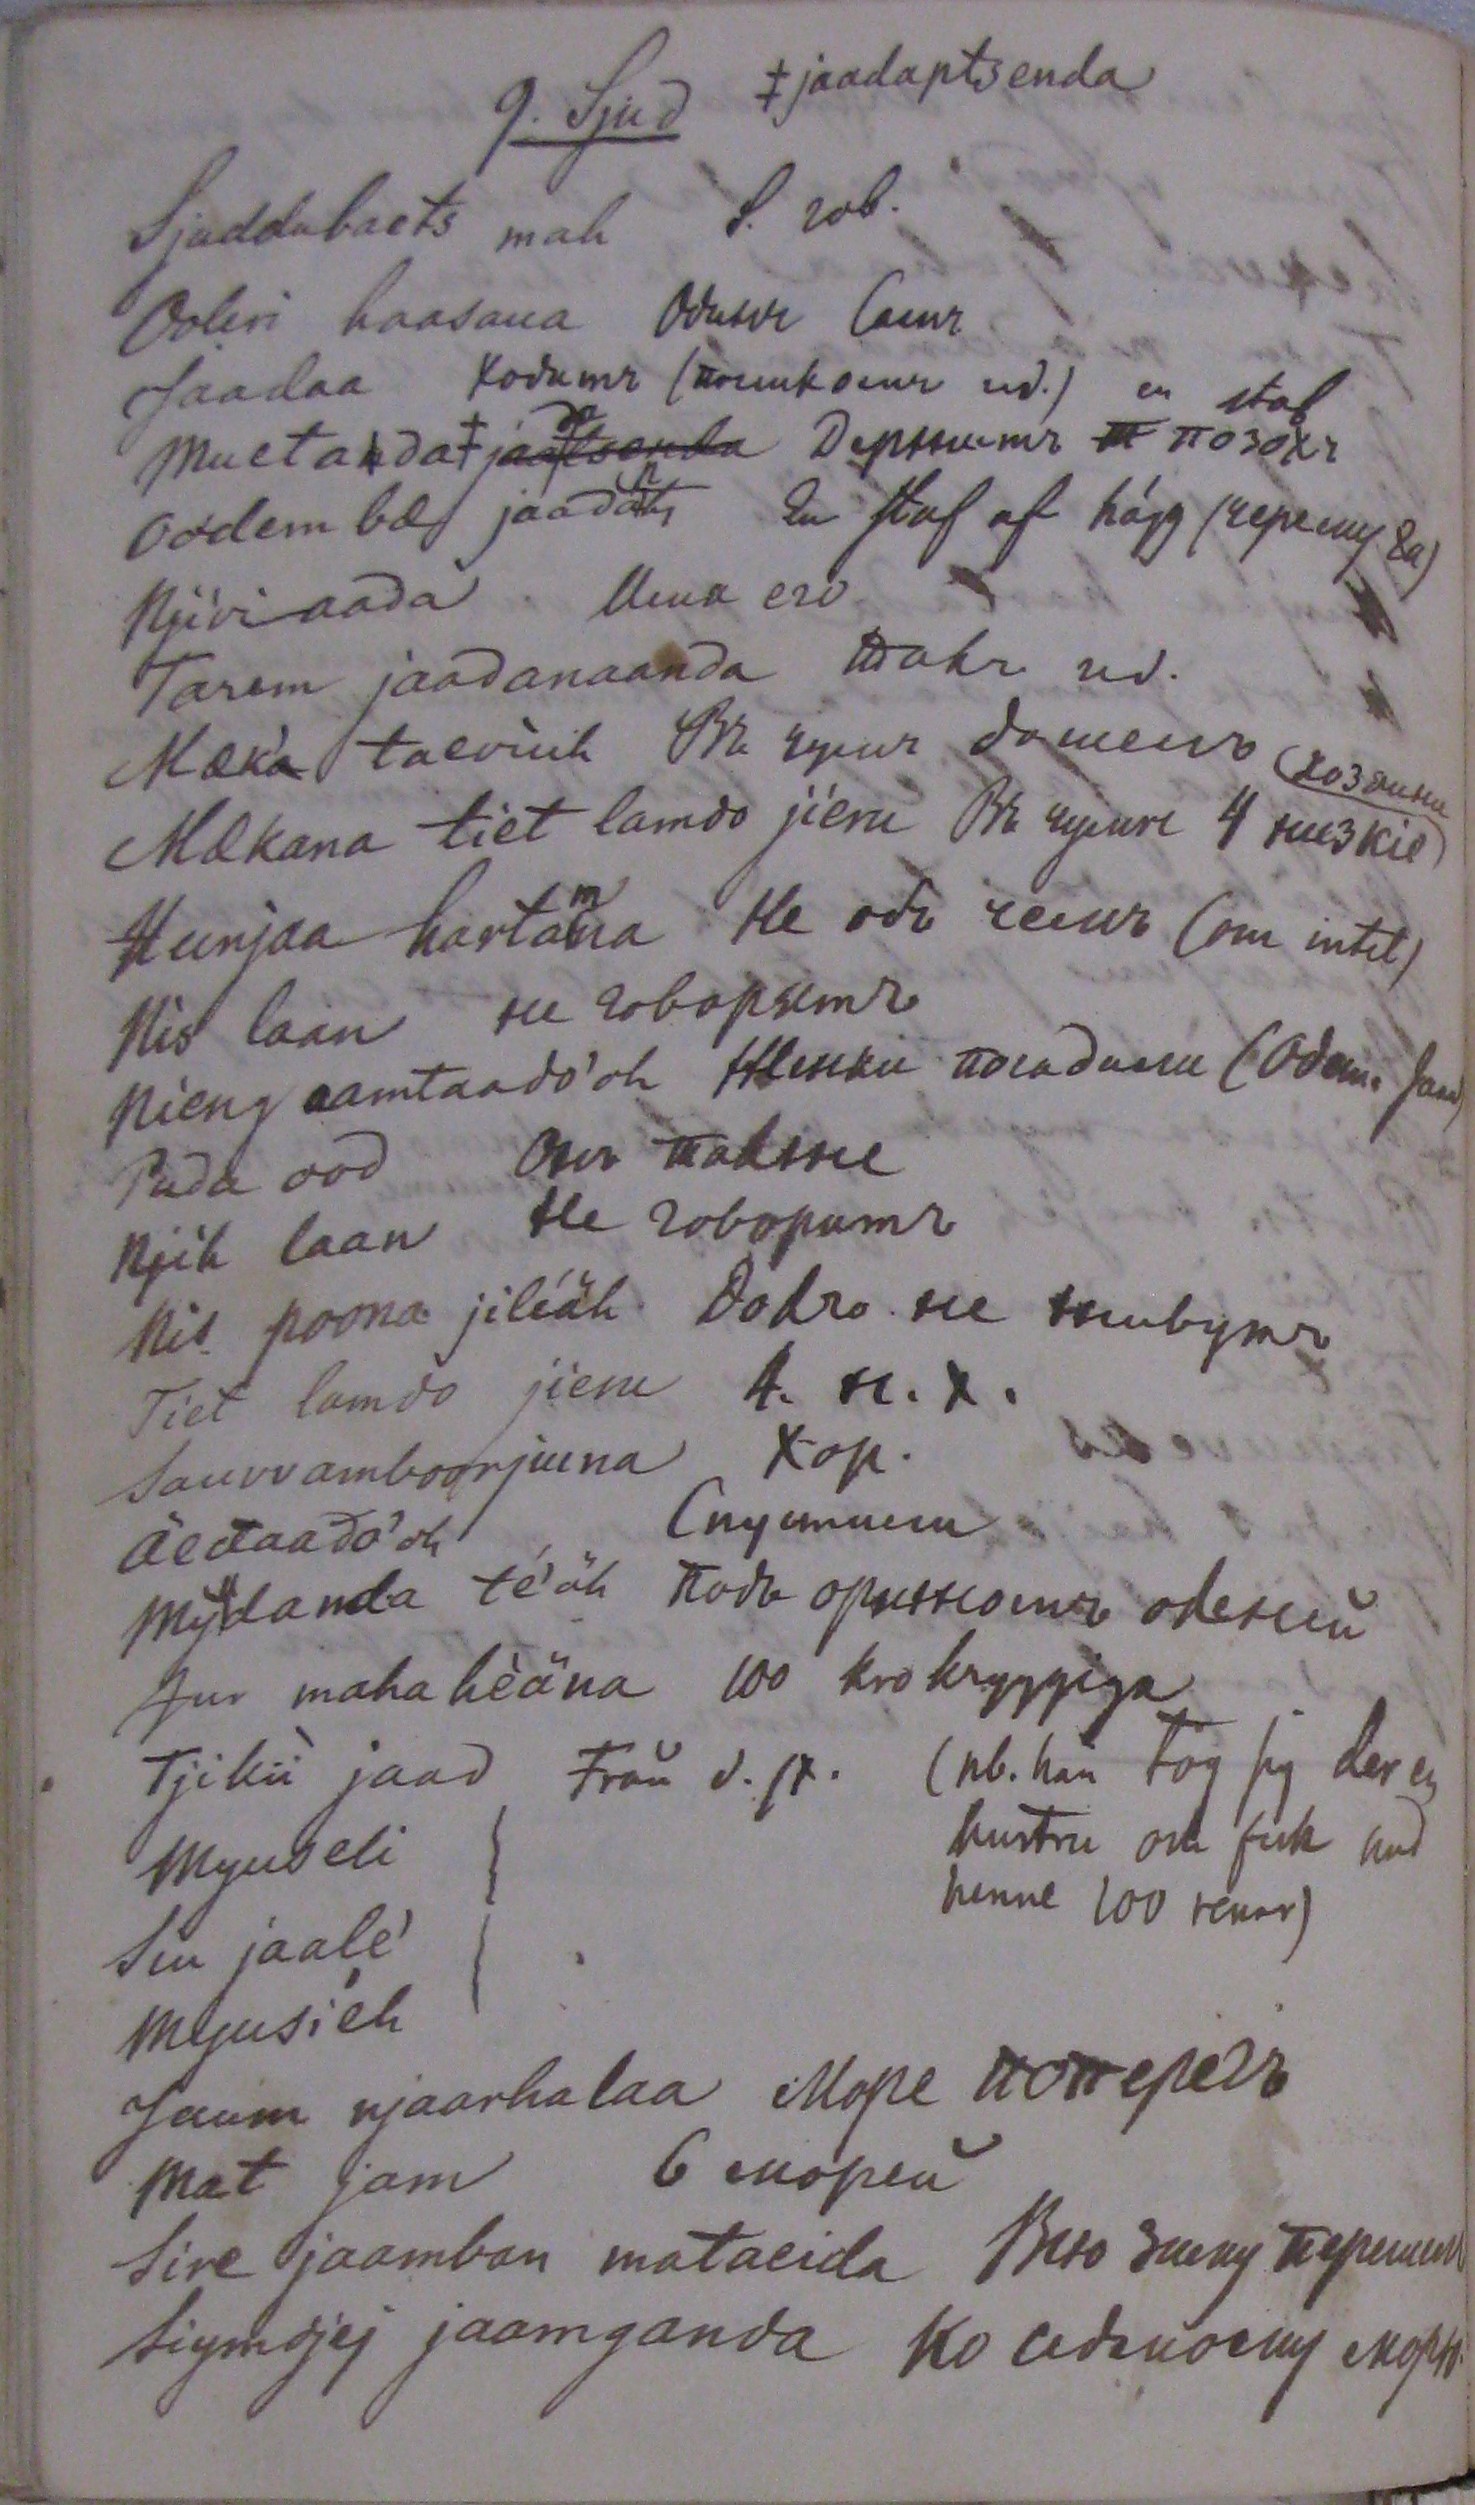 9. Sjud ‡jaadaptsenda
Sjuddubaets mah S. гов.
Ooleri haasaua Одинъ самъ
Jaadaa ходитъ (пѣшкомъ ид.) en staf
Muetanda ‡ Держитъ посохъ
oodem bæ jaadapts En staf af hägg (черемуха)
Njivi aada Мимо его
Tarem jaadanaanda Такъ ид.
Mæka taevuh Въ чумъ домемъ (хозяинъ
Mækana tiet lamdo jieru Въ чумѣ 4 низкіе)
Hunjaa hartamna Не объ чемъ (om intet)
Nis laan не говорятъ
Nieng aamtaado'oh Женки посадили (Odem. Jaad)
Puda ood Онъ также
Njih laan Не говоритъ
Nis poona jileäh Долго не живутъ
Tiet lamdo jieru 4. н. х.
Sauvvamboorjuuna Хор.
Äedaado'oh Спустили
Mydanda te'äh Подъ оленей
Jur mahaheäna 100 krokryggiga
Tjikii jaad Från d. st. (nb. han tog sig der en
Myuseli hustru och fick med
henne 100 renar)
Siu jaale'
Myusieh
Jaum njaarhalaa Море поперегъ
Mat jam 6 морей
Sire jaamban mataeida Всю зиму перешли
Siymdjej jaamganda Ко седьмому морю.